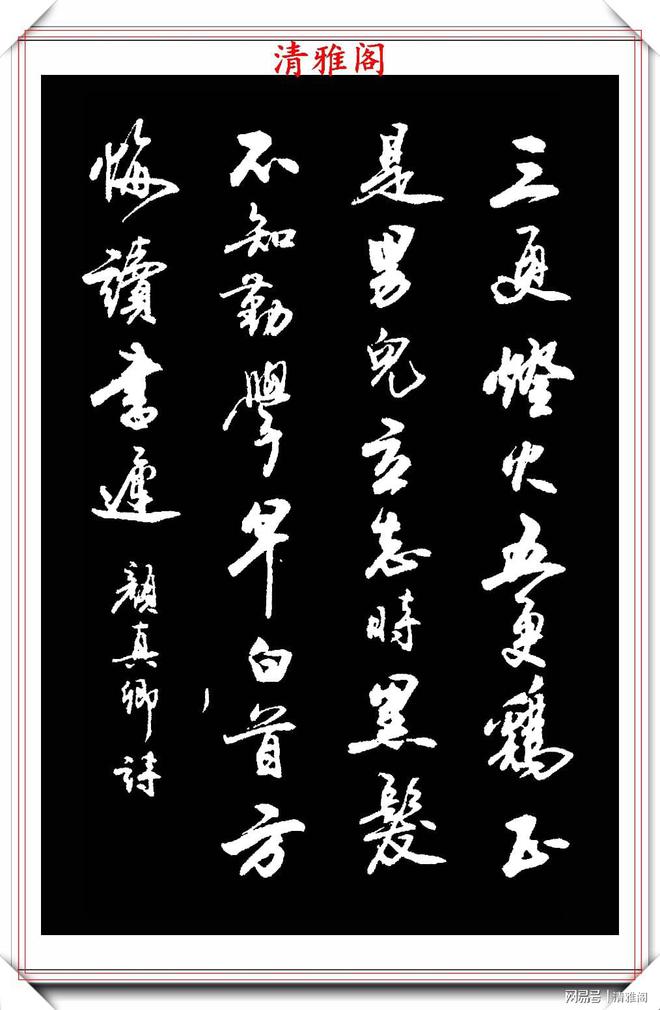 清雅阁
三更燈火五更鷄正
是男兒立志時黑髮
不知勤學早白首方
悔讀書遲
顔真卿詩
网易号|清雅阁